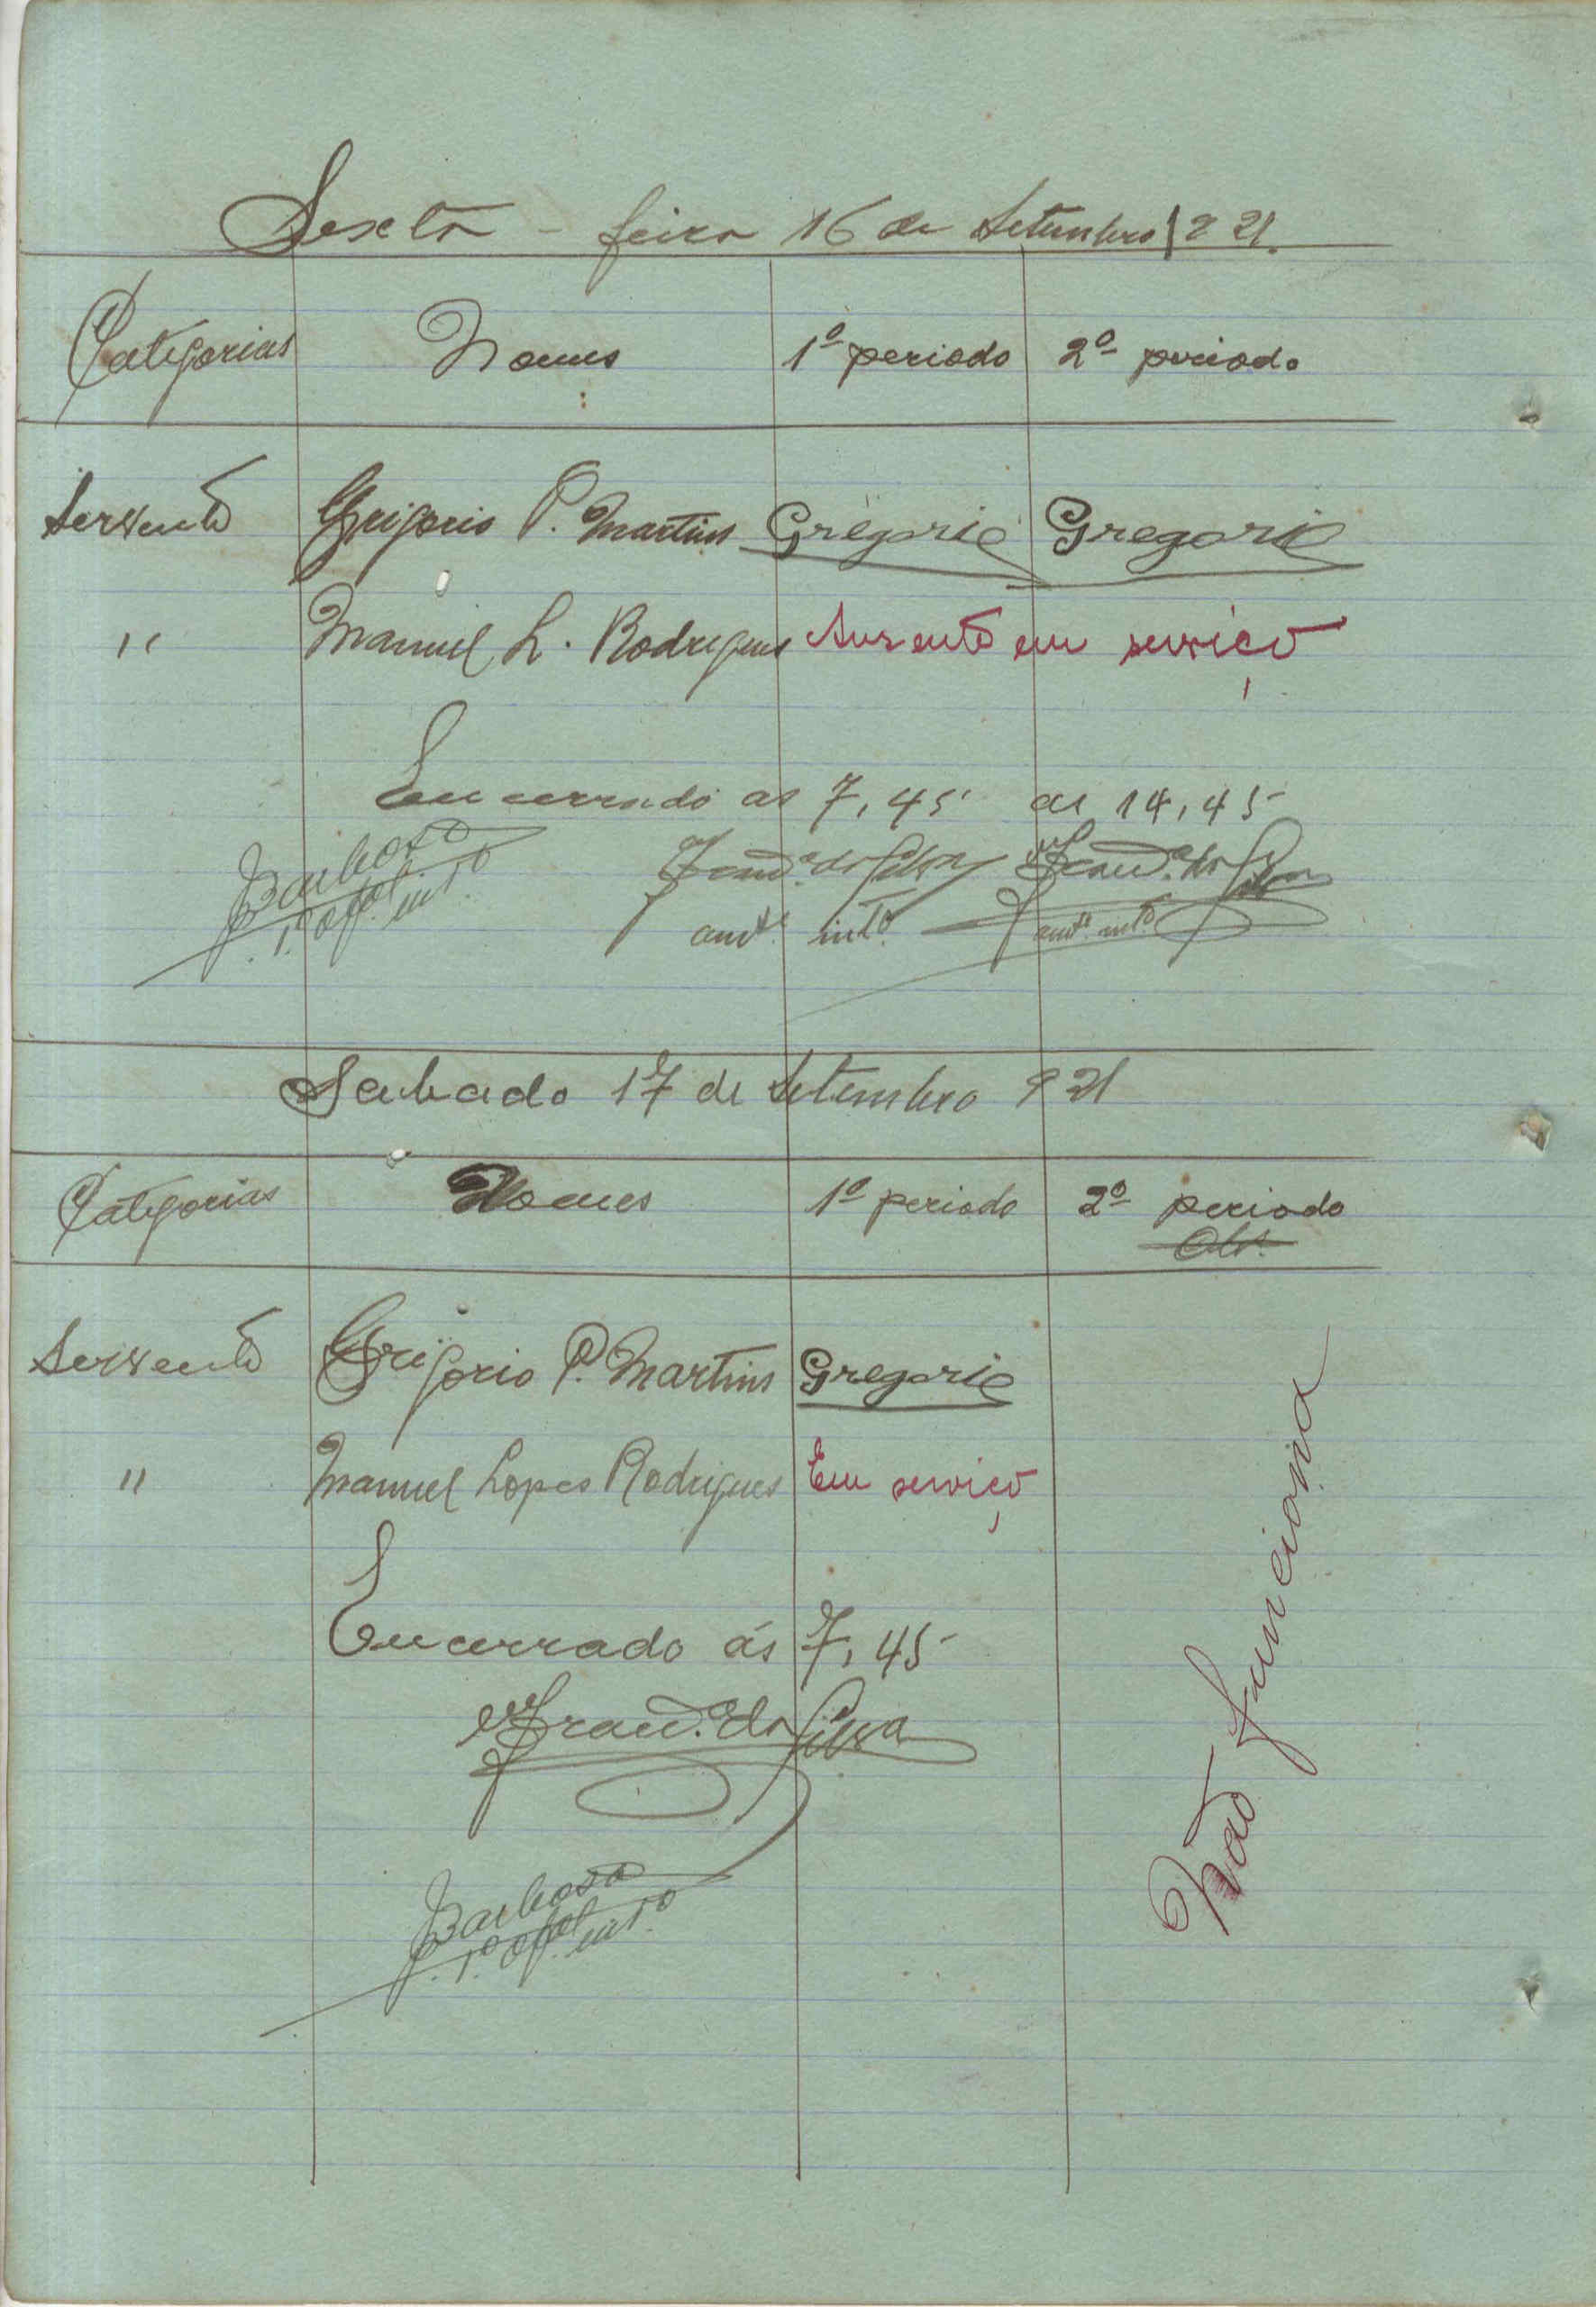 Sexta-feira 16 de Setembro 921.
Categorias Nomes 1º periodo 2º periodo
Servente Grigorio P. Martins Gregorio Gregorio
" Manuel L. Rodrigues Ausente em serviço
Encerrado as 7,45 as 14,45
Barbosa
1º. ofal. intº
da Silva da Silva
intº. intº
Sabado 17 de Setembro 921
Categorias Nomes 1º periodo 2º periodo
Obs.
Servente Grigorio P. Martins Gregorio
" Manuel Lopes Rodrigues Em serviço
Encerrado ás 7,45
da Silva
Barbosa
1º. ofal. intº
Não funciona